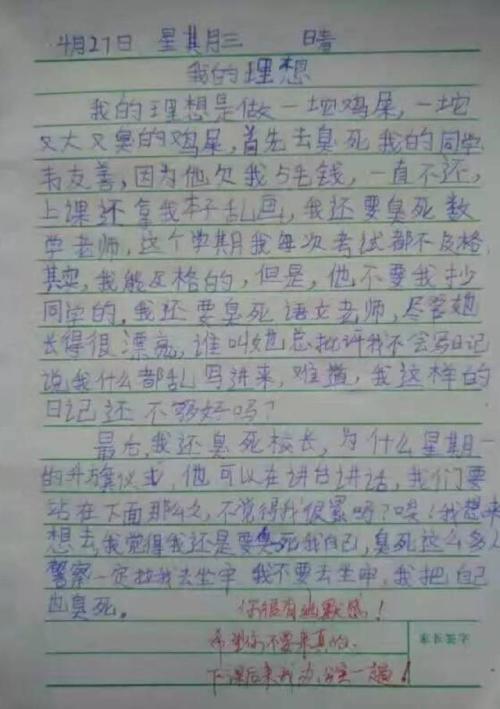 4月27日 星其月三 晴
我的理想
我的理想是做一坨鸡屎，一坨
又大又臭的鸡屎，首先去臭死我的同学
韦友善，因为他欠我5毛钱，一直不还，
上课还拿我本子乱画，我还要臭死数
学老师，这个学期我每次考试都不及格，
其实，我能及格的，但是，他不要我抄
同学的，我还要臭死语文老师，尽管她
长得很漂亮，谁叫她总批评我不会写日记
说我什么都乱写进来，难道，我这样的
日记还不够好吗？
最后，我还臭死校长，为什么星期一
的升旗仪式，他可以在讲台讲话，我们要
站在下面那么久，不觉得我很累吗？唉！我想来
想去我觉得我还是要臭死我自己，臭死这么多人
警察一定拉我去坐牢，我不要去坐牢，我把自己
也臭死。
你很有幽默感！
希望你不要来真的。
下课后来我办公室一趟！
家长签字